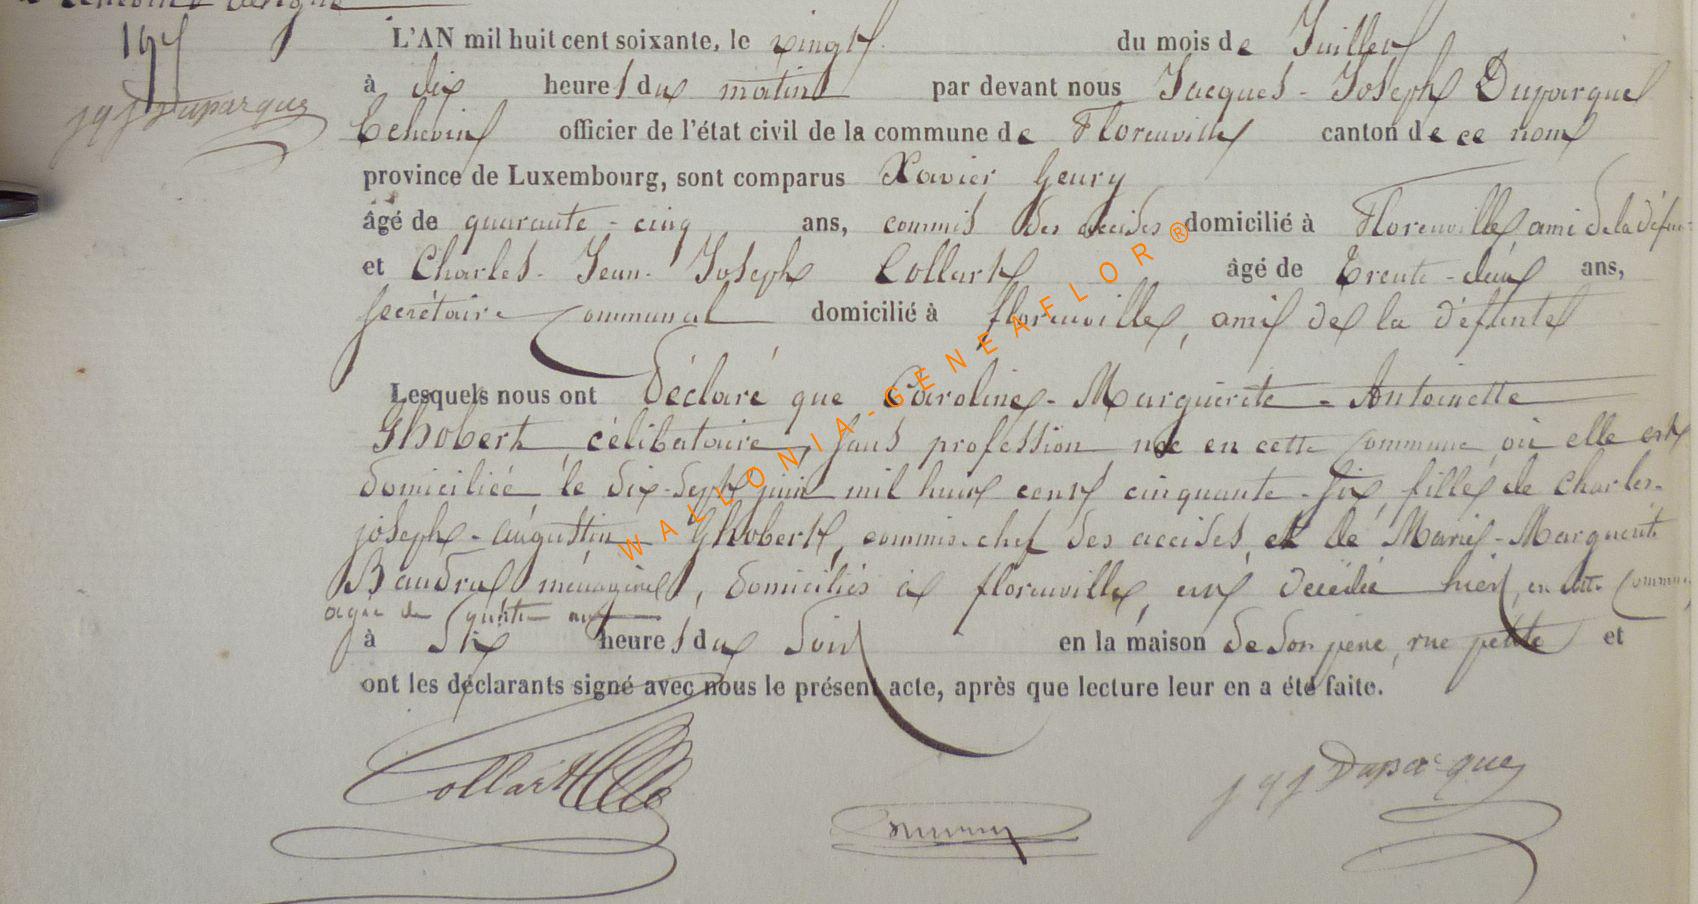 L'AN mil huit cent soixante, le vingt du mois de Juillet
à dix heures du matin par devant nous Jacques-Joseph Duparque
Echevin officier de l'état civil de la commune de Florenville canton de ce nom
JqJ Duparque
province de Luxembourg, sont comparus Xavier Geury
âgé de quarante-cinq ans, commis des accises domicilié à Florenville, ami de la défunte
et Charles-Jean-Joseph Collart âgé de trente-deux ans,
secrétaire communal domicilié à florenville, ami de la défunte
Lesquels nous ont déclaré que Caroline-Marguerite-Antoinette
Ghobert, célibataire, sans profession née en cette commune, où elle est
domiciliée le dix-sept juin mil huit cent cinquante-six, fille de Charles-
joseph-augustin Ghobert, commis-chef des accises, et de Marie-Marguerite
Baudru ménagère, domiciliés à florenville, est décédée hier, en cette commune,
à six heures du soir en la maison de son père, rue petite et
ont les déclarants signé avec nous le présent acte, après que lecture leur en a été faite.
Collart
JqJ Duparque
WALLONIA-GENEAFLOR®